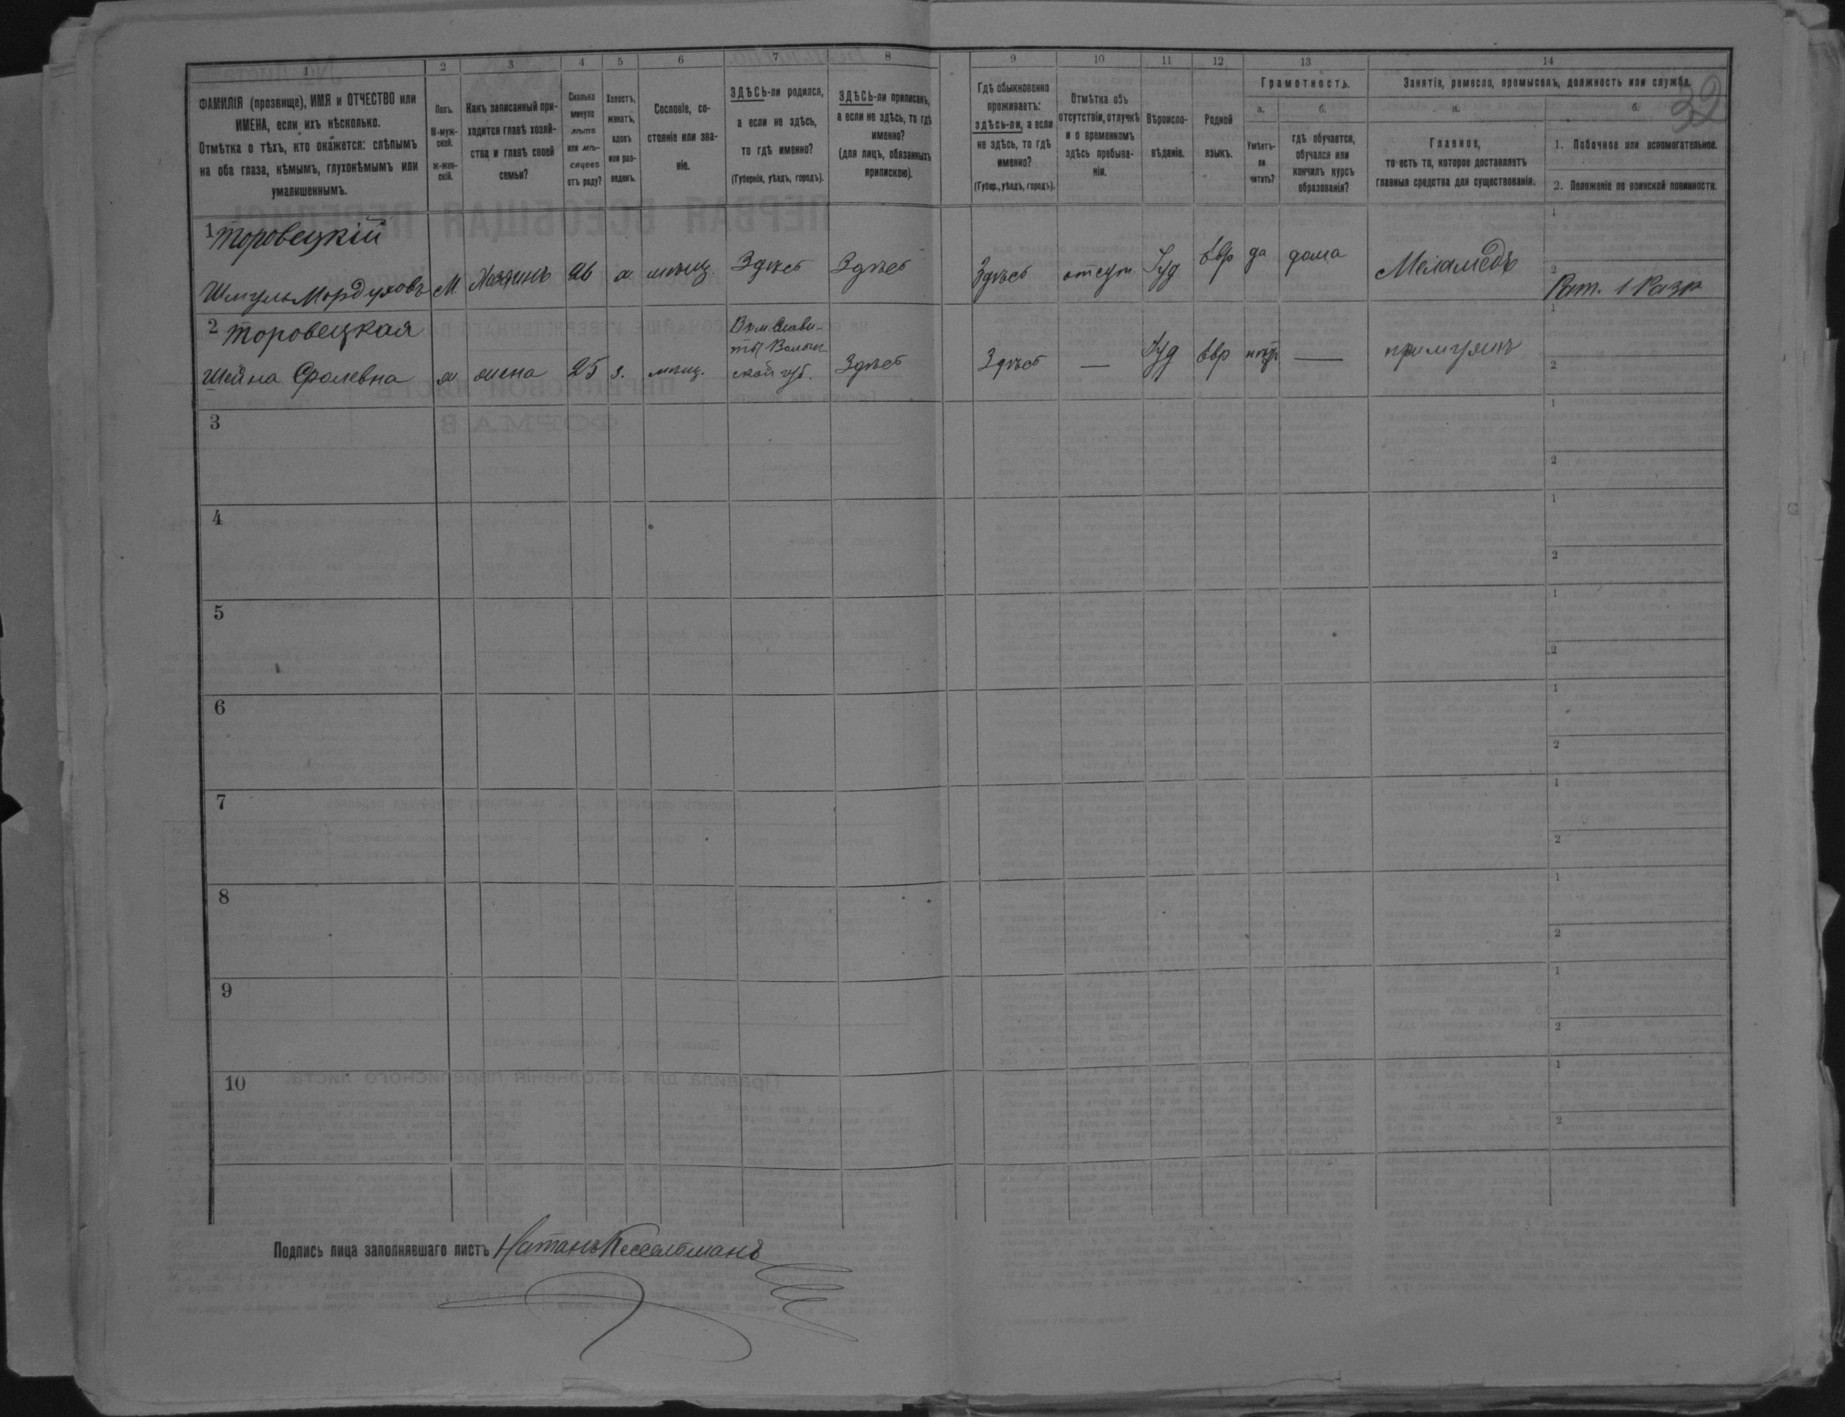 1
2
3
4
5
6
7
8
9
10
11
12
13
14
ФАМИЛІЯ (прозвище), ИМЯ и ОТЧЕСТВО или
ИМЕНА, если ихъ нѣсколько.
Отмѣтка о тѣхъ, кто окажется: слѣпымъ
на оба глаза, нѣмымъ, глухонѣмымъ или
умалишеннымъ.
Полъ.
М-муж-
ской.
ж-жен-
скій.
Какъ записанный при-
ходится главѣ хозяй-
ства и главѣ своей
семьи?
Сколько
минуло
лѣтъ
или мѣ-
сяцевъ
отъ роду?
Холостъ,
женатъ,
вдовъ
или раз-
веденъ.
Сословіе, со-
стояніе или зва-
ніе.
ЗДѢСЬ-ли родился,
а если не здѣсь,
то гдѣ именно?
(Губернія, уѣздъ, городъ).
ЗДѢСЬ-ли приписанъ,
а если не здѣсь, то гдѣ
именно?
(для лицъ, обязанныхъ
припискою).
Гдѣ обыкновенно
проживаетъ:
здѣсь-ли, а если
не здѣсь, то гдѣ
именно?
(Губер., уѣздъ, городъ).
Отмѣтка объ
отсутствіи, отлучкѣ
и о временномъ
здѣсь пребыва-
ніи.
Вѣроиспо-
вѣданіе.
Родной
языкъ.
Грамотность.
а.
б.
Умѣетъ-
ли
читать?
гдѣ обучается,
обучался или
кончилъ курсъ
образованія?
Занятія, ремесло, промыселъ, должность или служба.
а.
б.
Главное,
то есть то, которое доставляетъ
главныя средства для существованія.
1. Побочное или вспомогательное.
2. Положеніе по воинской повинности.
1 Торовецкій
Шмуль Мордуховъ М Хозяинъ 26 ж мѣщ. Здѣсь Здѣсь Здѣсь отсут Іуд Евр да дома Меламедъ
1
2 Рат. 1 Разр
2 Торовецкая
Шейна Сролевна ж жена 25 з. мѣщ.
Волын
ской губ. Здѣсь Здѣсь — Іуд Евр —
1
2
3
1
2
4
1
2
5
1
2
6
1
2
7
1
2
8
1
2
9
1
2
10
1
2
Подпись лица заполнявшаго листъ Натанъ Кессельманъ